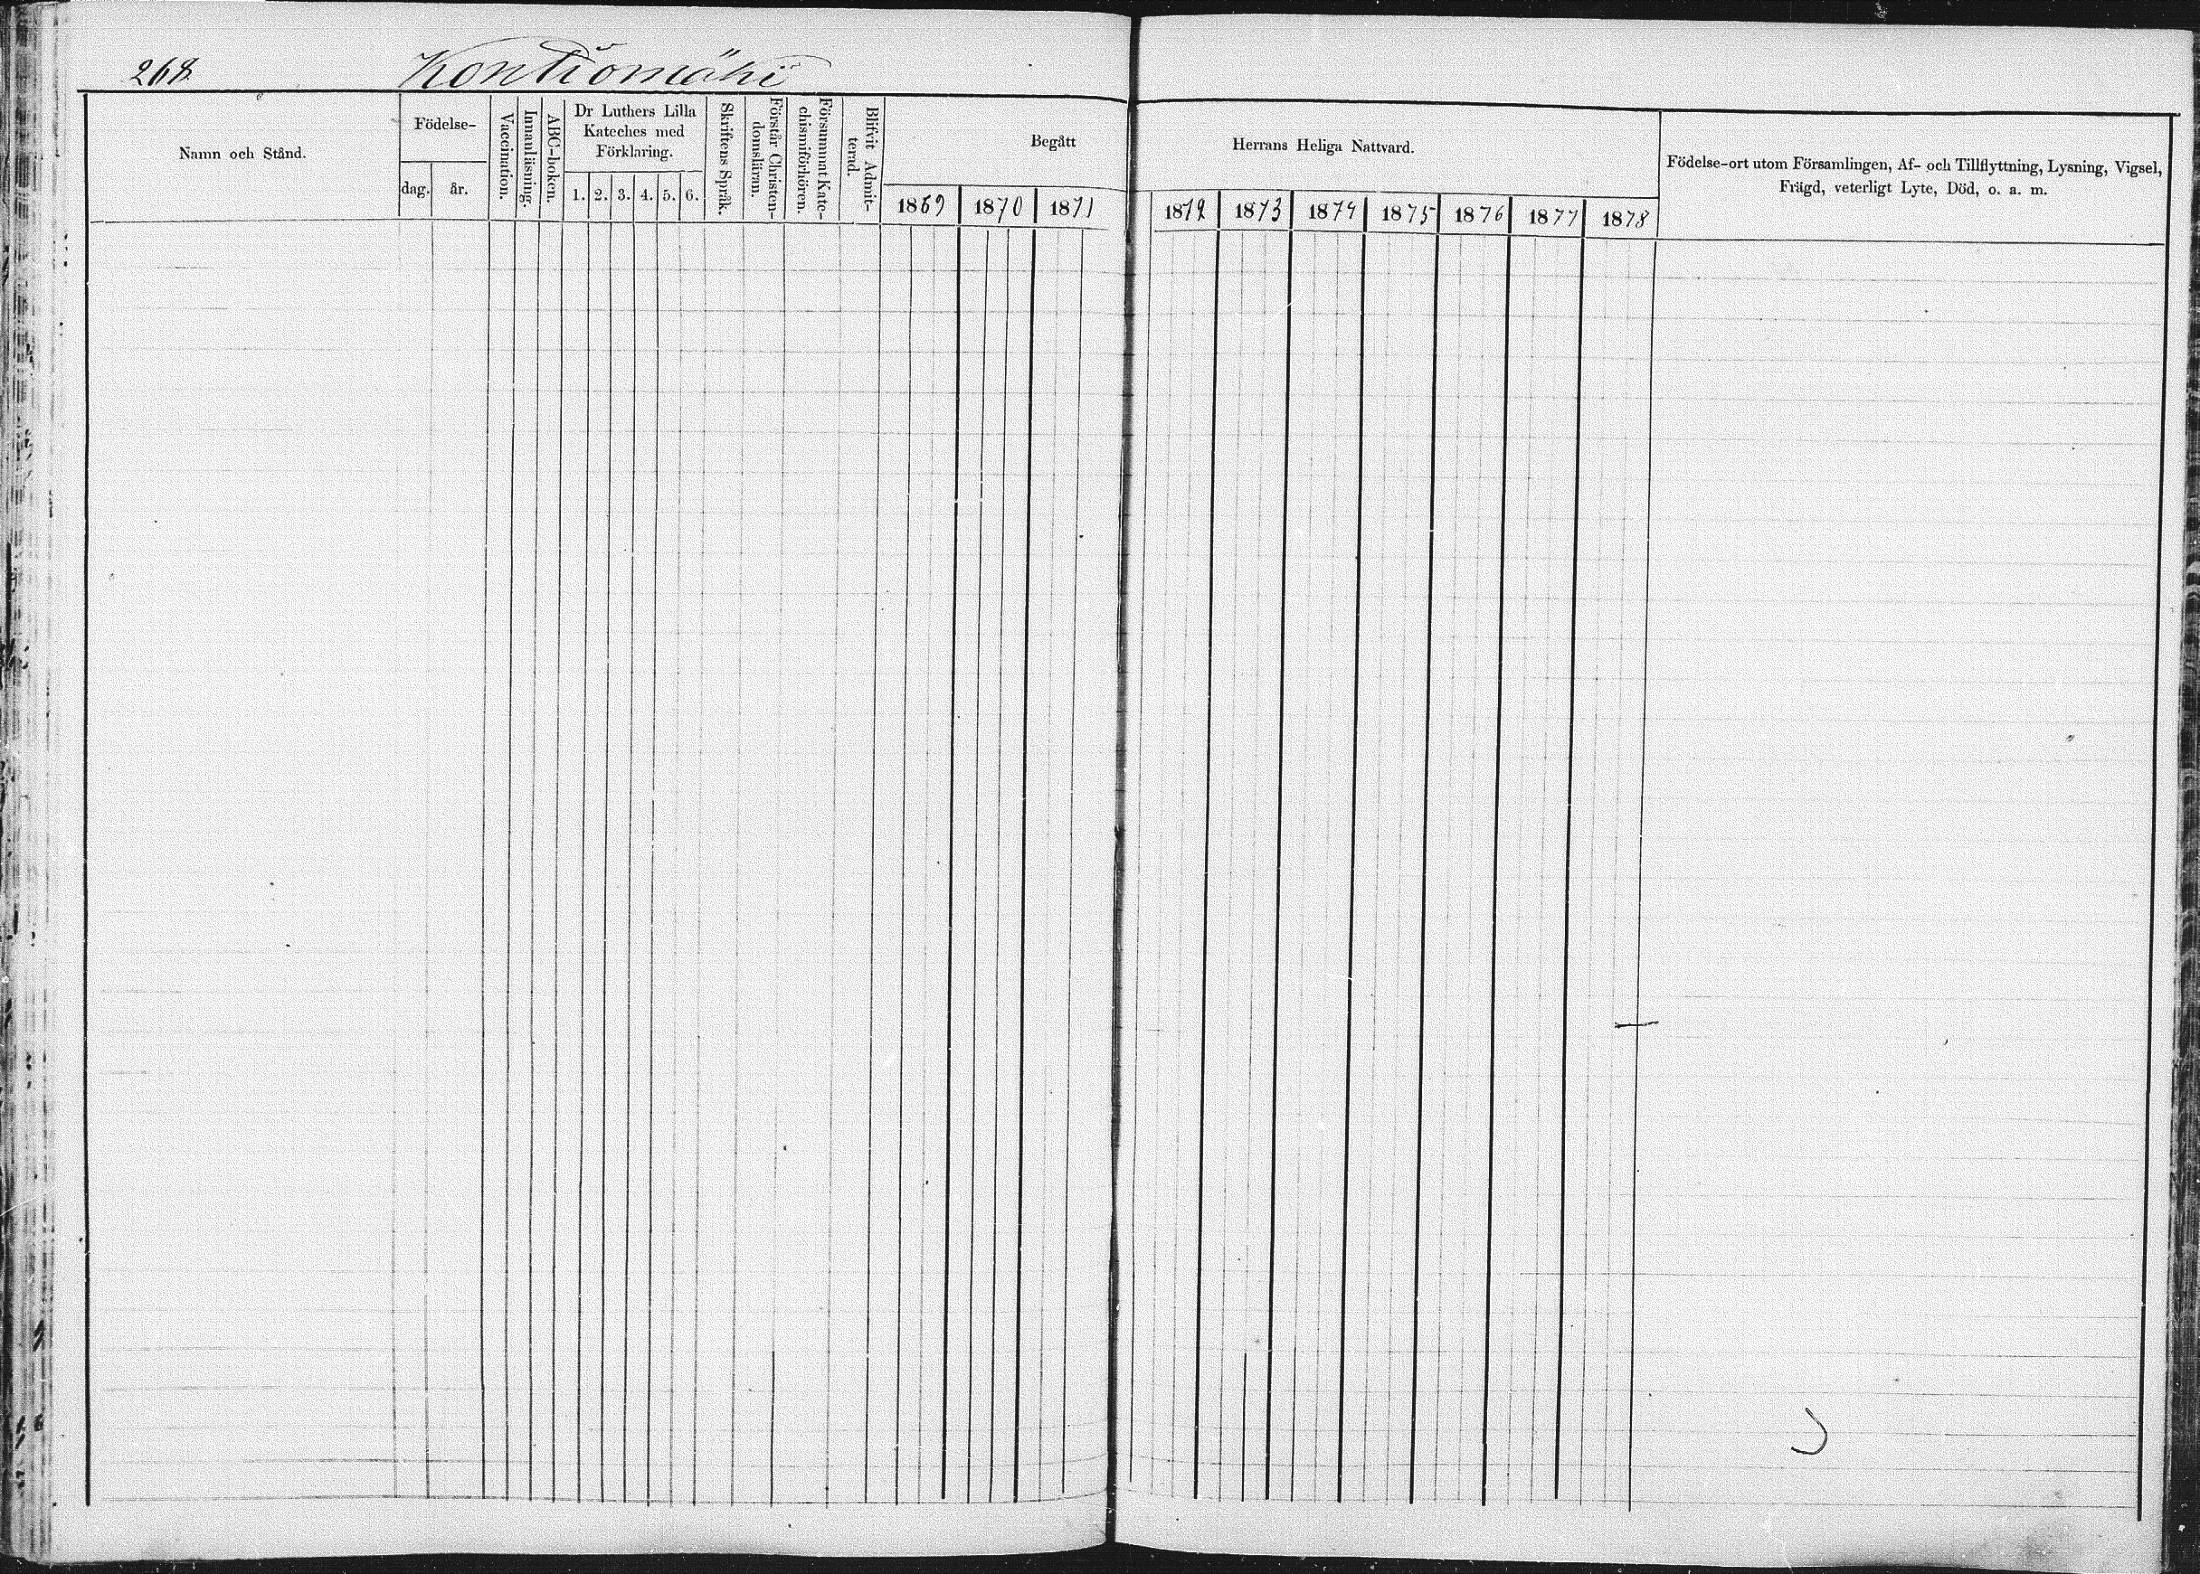 268.
Kontiomäki
Namn och Stånd.
Födelse-
dag.
år.
Vaccination.
Innanläsning.
ABC-boken.
Dr Luthers Lilla
Kateches med
Förklaring.
1. 2. 3. 4. 5. 6.
Skriftens Språk.
Förstår Christen-
domsläran.
Försummat Kate-
chismiförhören.
Blifvit Admit-
terad.
Begått
1869 1870 1871
Herrans Heliga Nattvard.
1872 1873 1874 1875 1876 1877 1878
Födelse-ort utom Församlingen, Af- och Tillflyttning, Lysning, Vigsel,
Frägd, veterligt Lyte, Död, o. a. m.